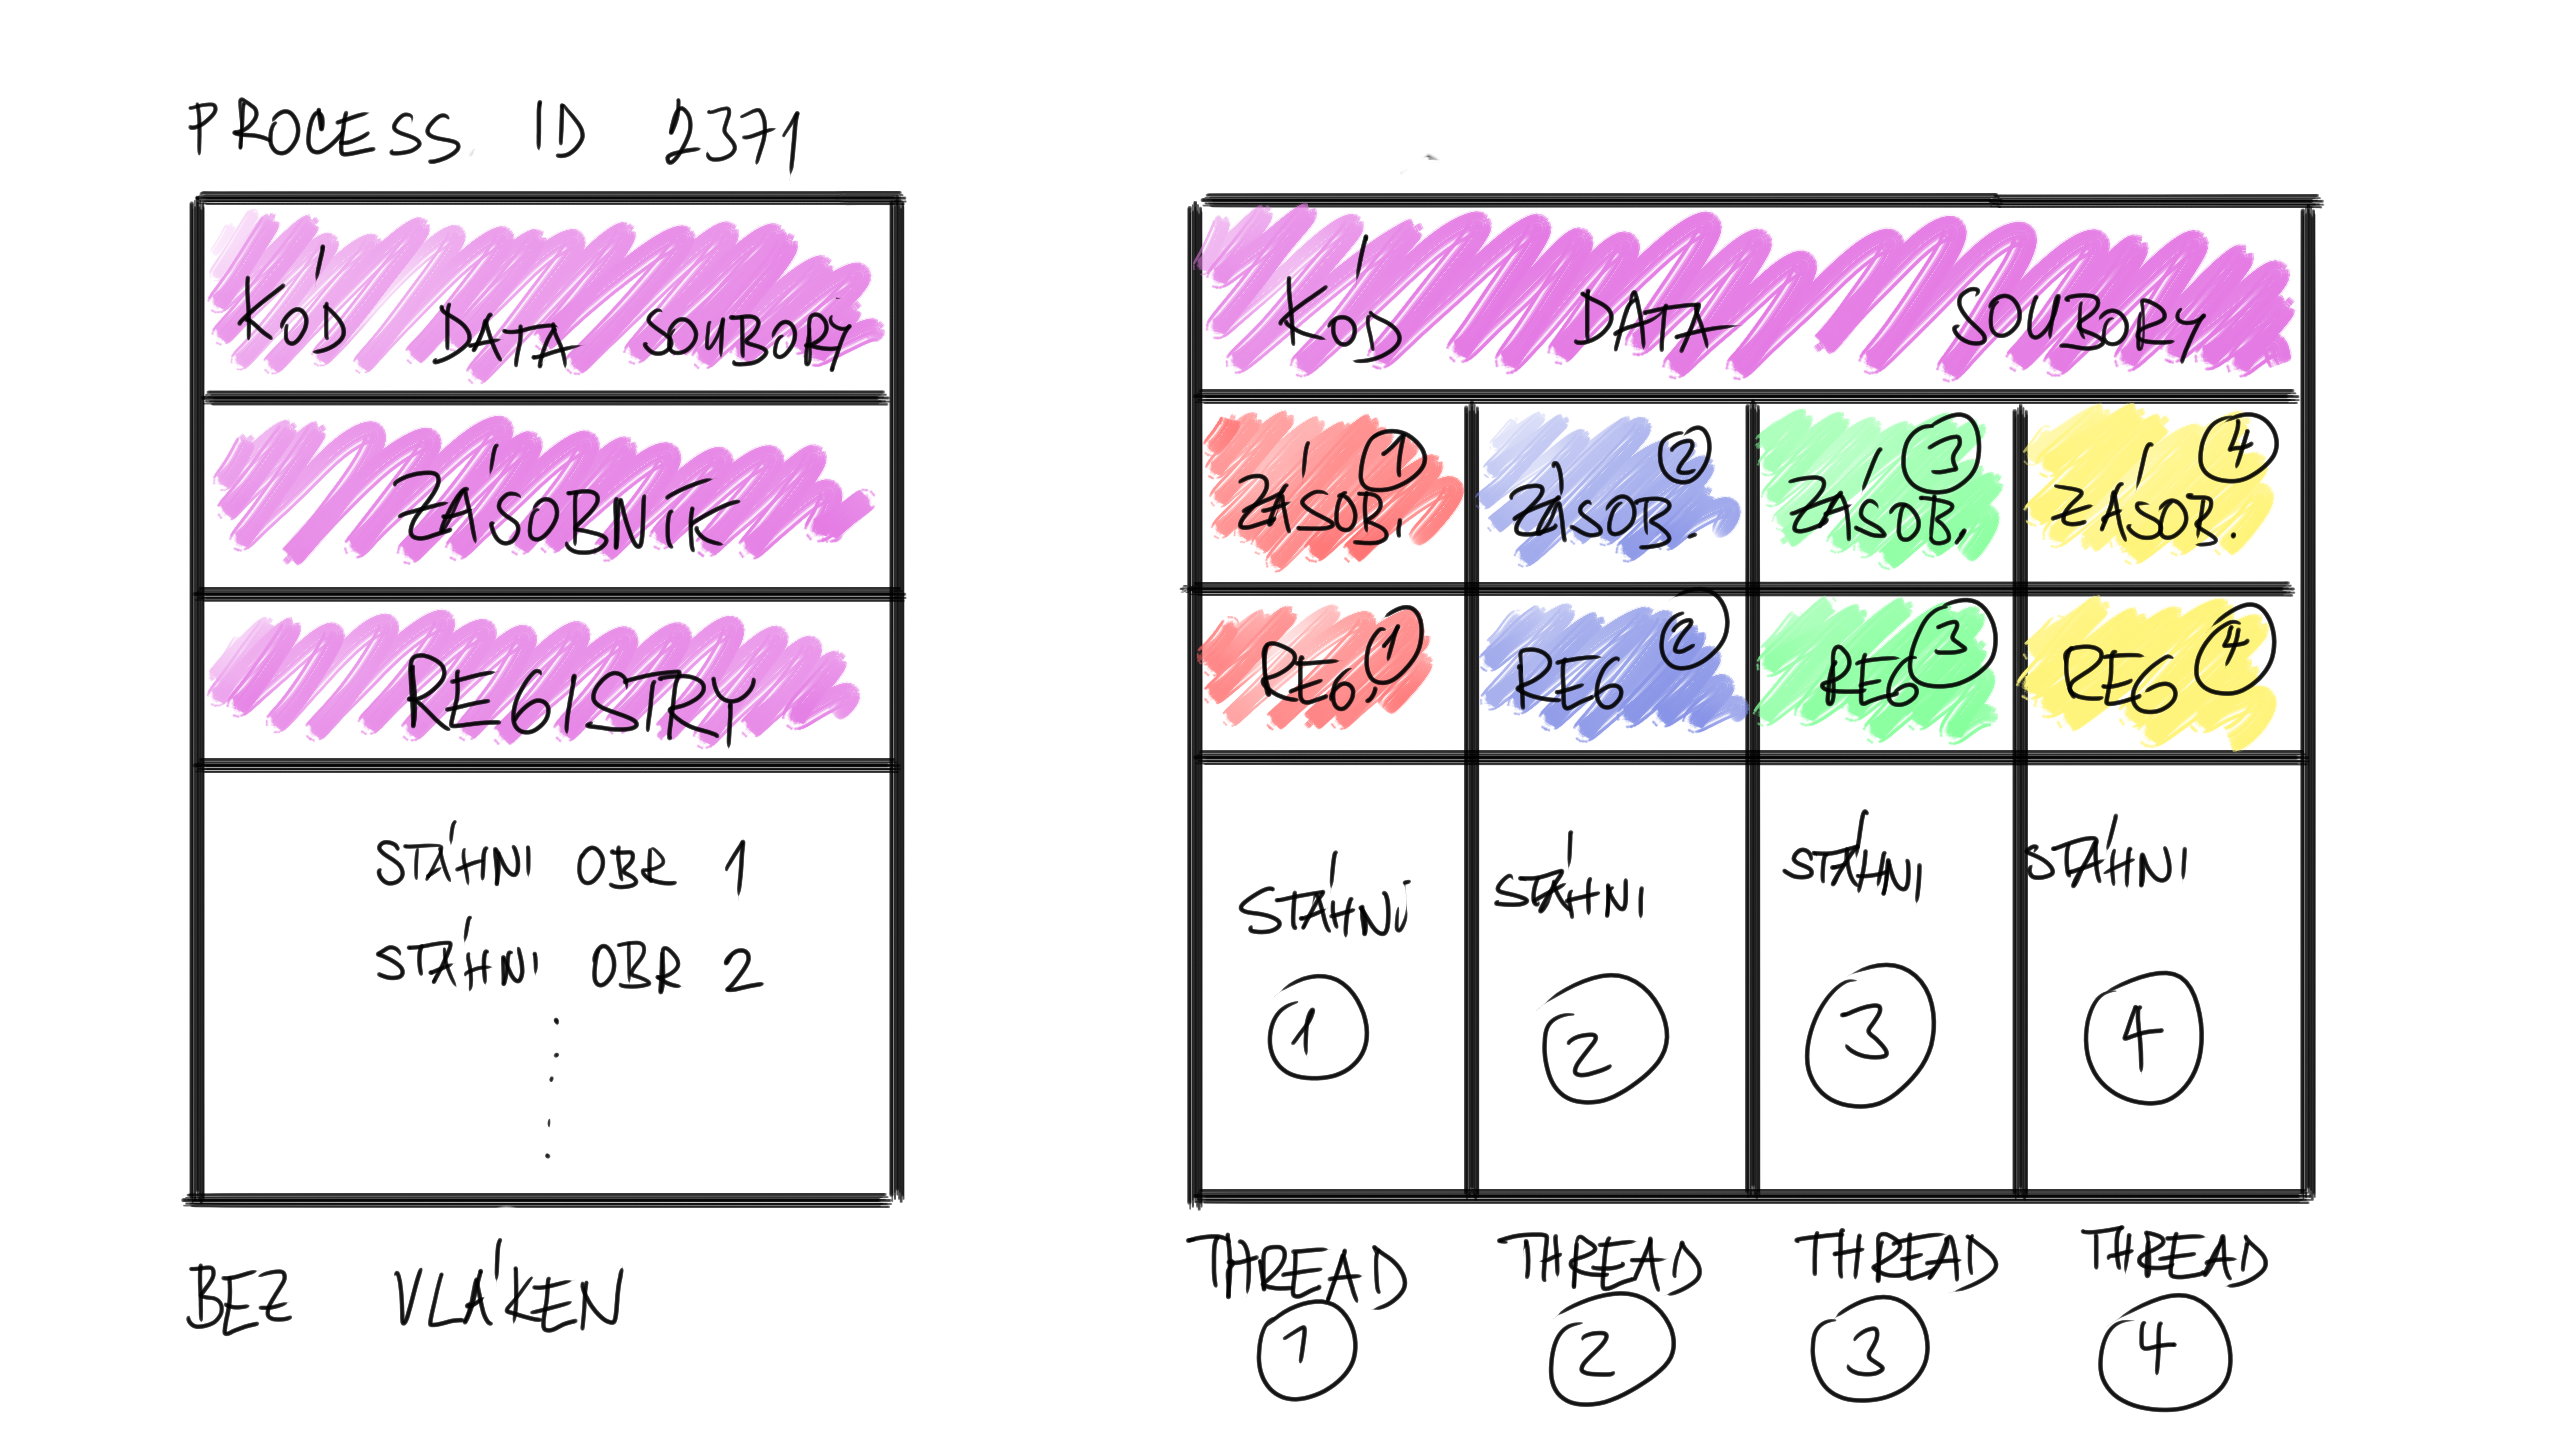 PROCESS ID 2371
KÓD DATA SOUBORY
ZÁSOBNÍK
REGISTRY
STÁHNI OBR 1
STÁHNI OBR 2
BEZ VLÁKEN
KÓD DATA SOUBORY
ZÁSOB. 1 ZÁSOB. 2 ZÁSOB. 3 ZÁSOB. 4
REG. 1 REG 2 REG 3 REG 4
STÁHNI STÁHNI STÁHNI STÁHNI
1 2 3 4
THREAD THREAD THREAD THREAD
1 2 3 4